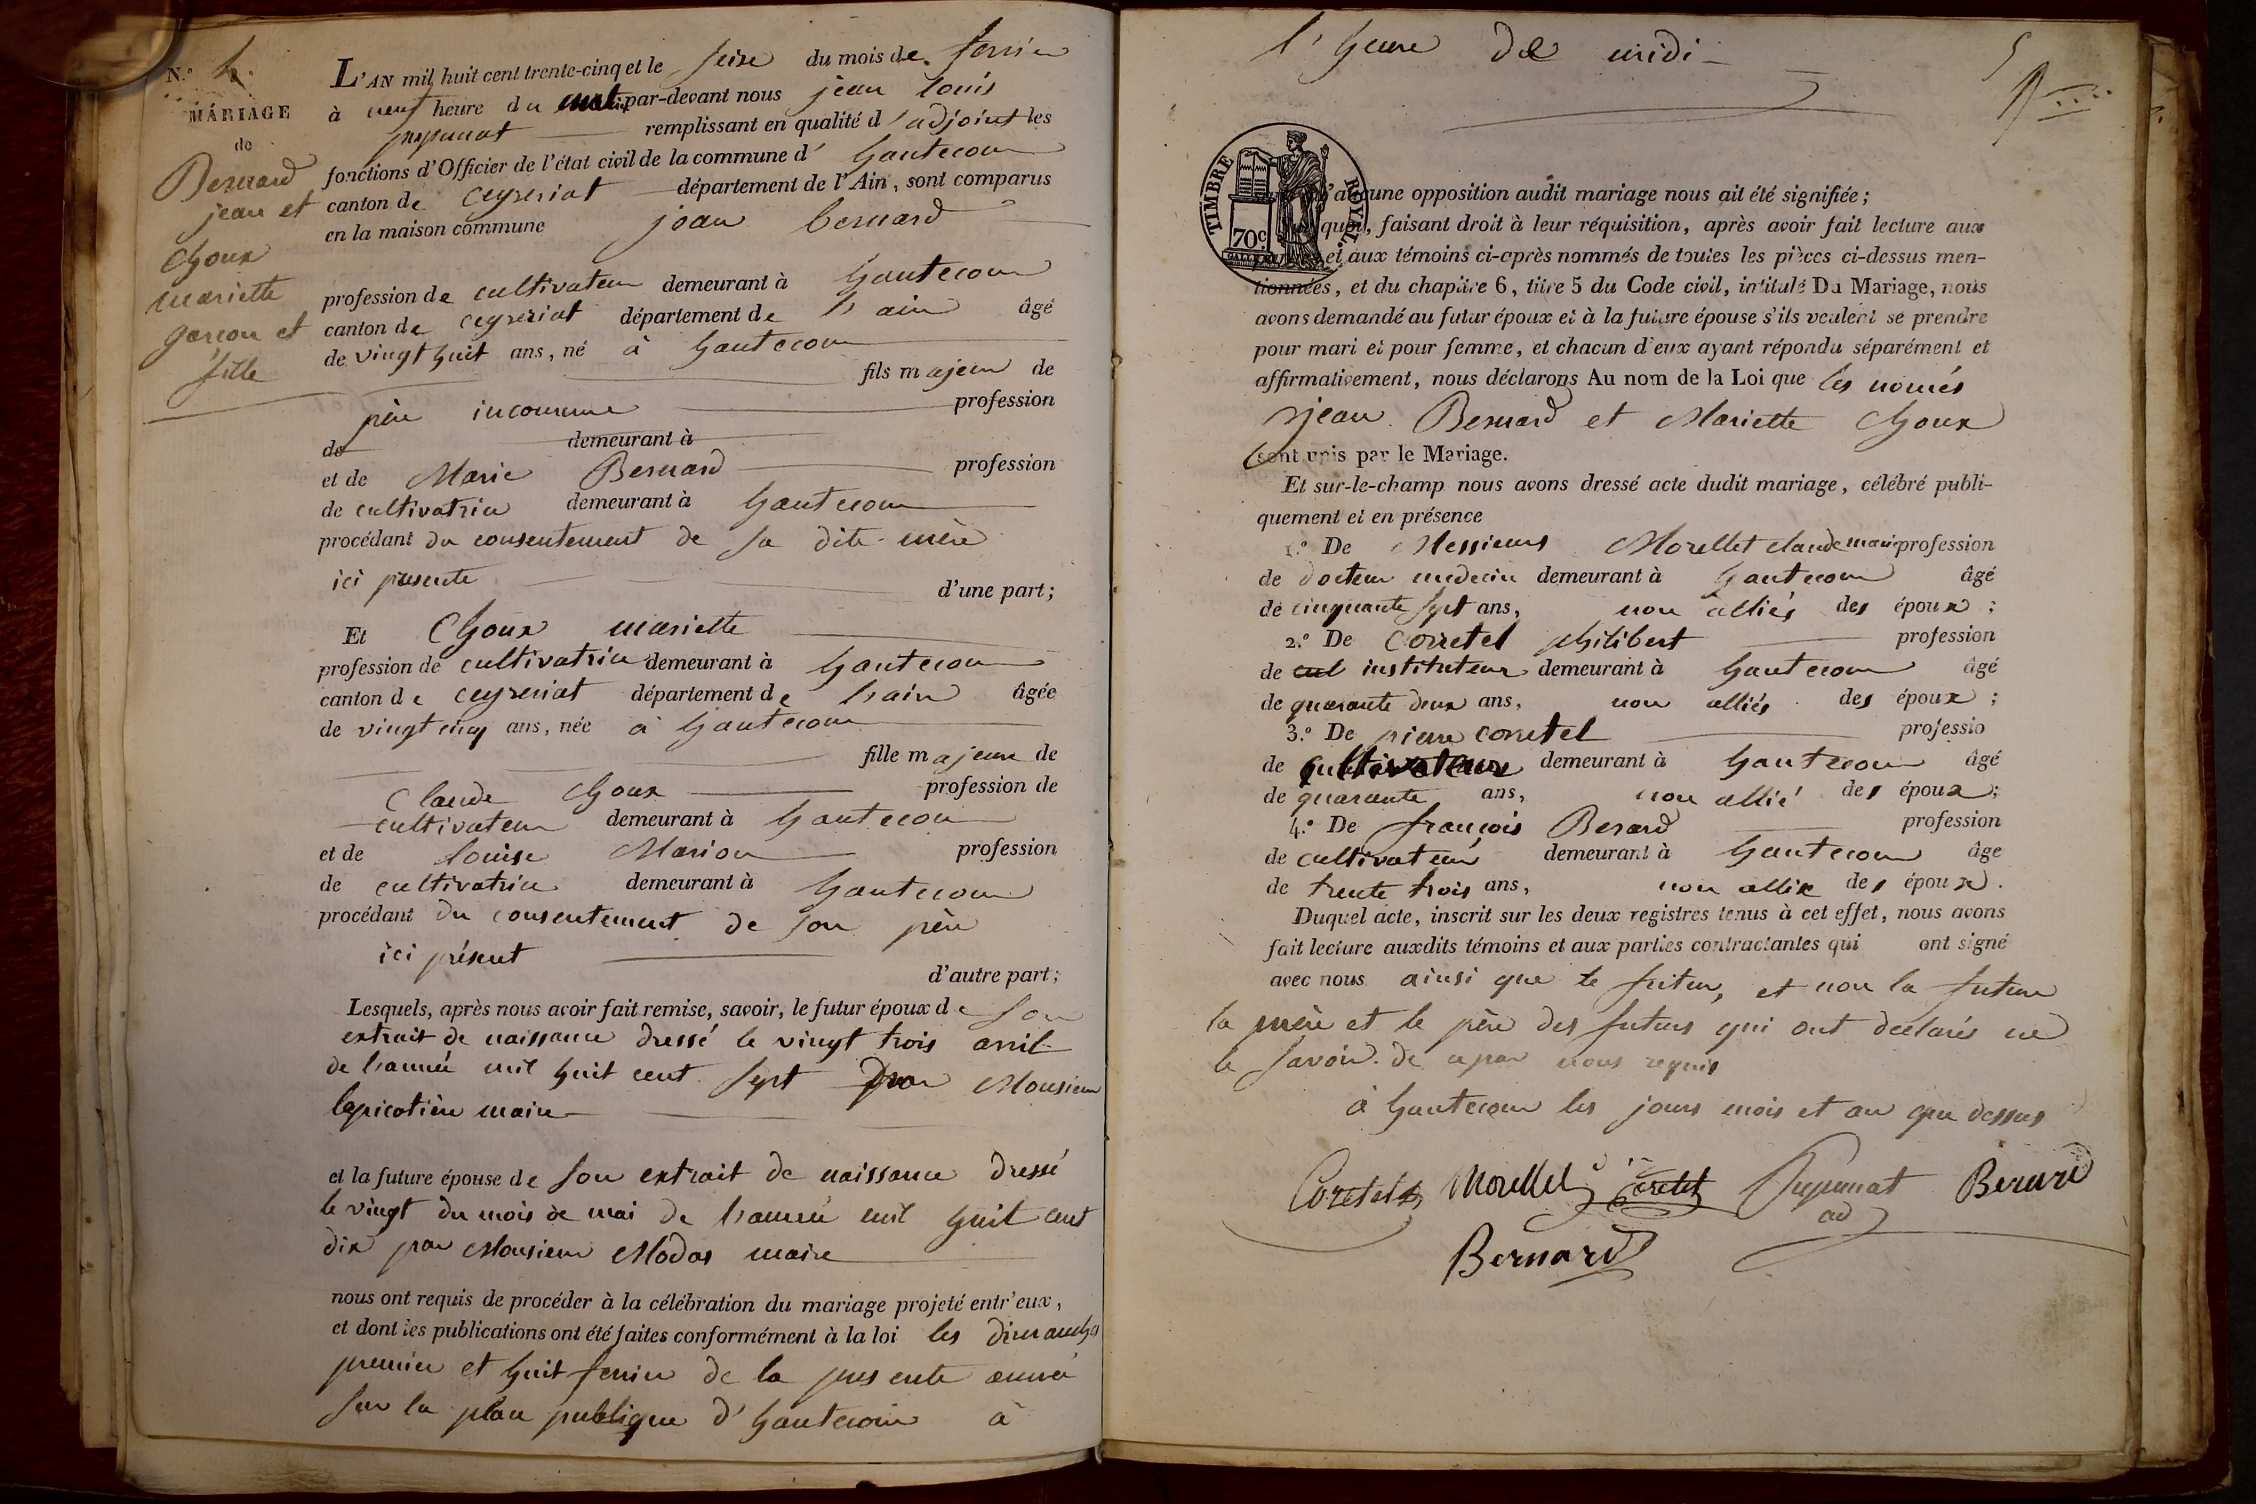 N.º
MARIAGE
de
Bernard
jean et
Choux
mariette
garcon et
fille
L'AN mil huit cent trente-cinq et le seize du mois de fevrier
à neuf heure du matin par-devant nous jean louis
remplissant en qualité d'adjoint les
fonctions d'Officier de l'état civil de la commune d'hautecour
canton de ceyzeriat département de l'Ain, sont comparus
en la maison commune jean bernard
profession de cultivateur demeurant à hautecour
canton de ceyzeriat département de l'ain âgé
de vingt huit ans, né à hautecour
fils majeur de
père inconnu profession
de demeurant à
et de Marie Bernard profession
de cultivatrice demeurant à hautecour
procédant du consentement de sa dite mère
ici presente d'une part;
Et Choux mariette
profession de cultivatrice demeurant à hautecour
canton de ceyzeriat département de l'ain âgée
de vingt cinq ans, née à hautecour
fille majeure de
Claude Choux profession de
cultivateur demeurant à hautecour
et de louise Marion profession
de cultivatrice demeurant à hautecour
procédant du consentement de son père
ici présent
d'autre part;
Lesquels, après nous avoir fait remise, savoir, le futur époux de son
extrait de naissance dressé le vingt trois avril
de l'année mil huit cent sept par Monsieur
lapicotière maire
et la future épouse de son extrait de naissance dressé
le vingt du mois de mai de l'année mil huit cent
dix par Monsieur Modas maire
nous ont requis de procéder à la célébration du mariage projeté entr'eux,
et dont les publications ont été faites conformément à la loi les dimanches
premier et huit fevrier de la presente année
sur la place publique d'hautecour à
l'heure de midi
5
TIMBRE ROYAL
70c.
d'aucune opposition audit mariage nous ait été signifiée;
quoi, faisant droit à leur réquisition, après avoir fait lecture aux
parties et aux témoins ci-après nommés de toutes les pièces ci-dessus men-
tionnées, et du chapitre 6, titre 5 du Code civil, intitulé Du Mariage, nous
avons demandé au futur époux et à la future épouse s'ils veulent se prendre
pour mari et pour femme, et chacun d'eux ayant répondu séparément et
affirmativement, nous déclarons Au nom de la Loi que les només
jean Bernard et Mariette Choux
sont unis par le Mariage.
Et sur-le-champ nous avons dressé acte dudit mariage, célébré publi-
quement et en présence
1.º De Messieurs Morellet claude marie profession
de docteur medecin demeurant à hautecour âgé
de cinquante sept ans, non alliés des époux;
2.º De Corretel philibert profession
de cul instituteur demeurant à hautecour âgé
de quarante deux ans, non alliés des époux;
3.º De pierre corretel professio
de cultivateur demeurant à hautecour âgé
de quarante ans, non allié des époux;
4.º De françois Berard profession
de cultivateur demeurant à hautecour âge
de trente trois ans, non allié des époux.
Duquel acte, inscrit sur les deux registres tenus à cet effet, nous avons
fait lecture auxdits témoins et aux parties contractantes qui ont signé
avec nous ainsi que le futur, et non la future
la mère et le père des futurs qui ont declarés ne
le savoir de ce par nous requis
à hautecour les jours mois et an que dessus
Coretel Morellet Coretel Berard
ad
Bernard